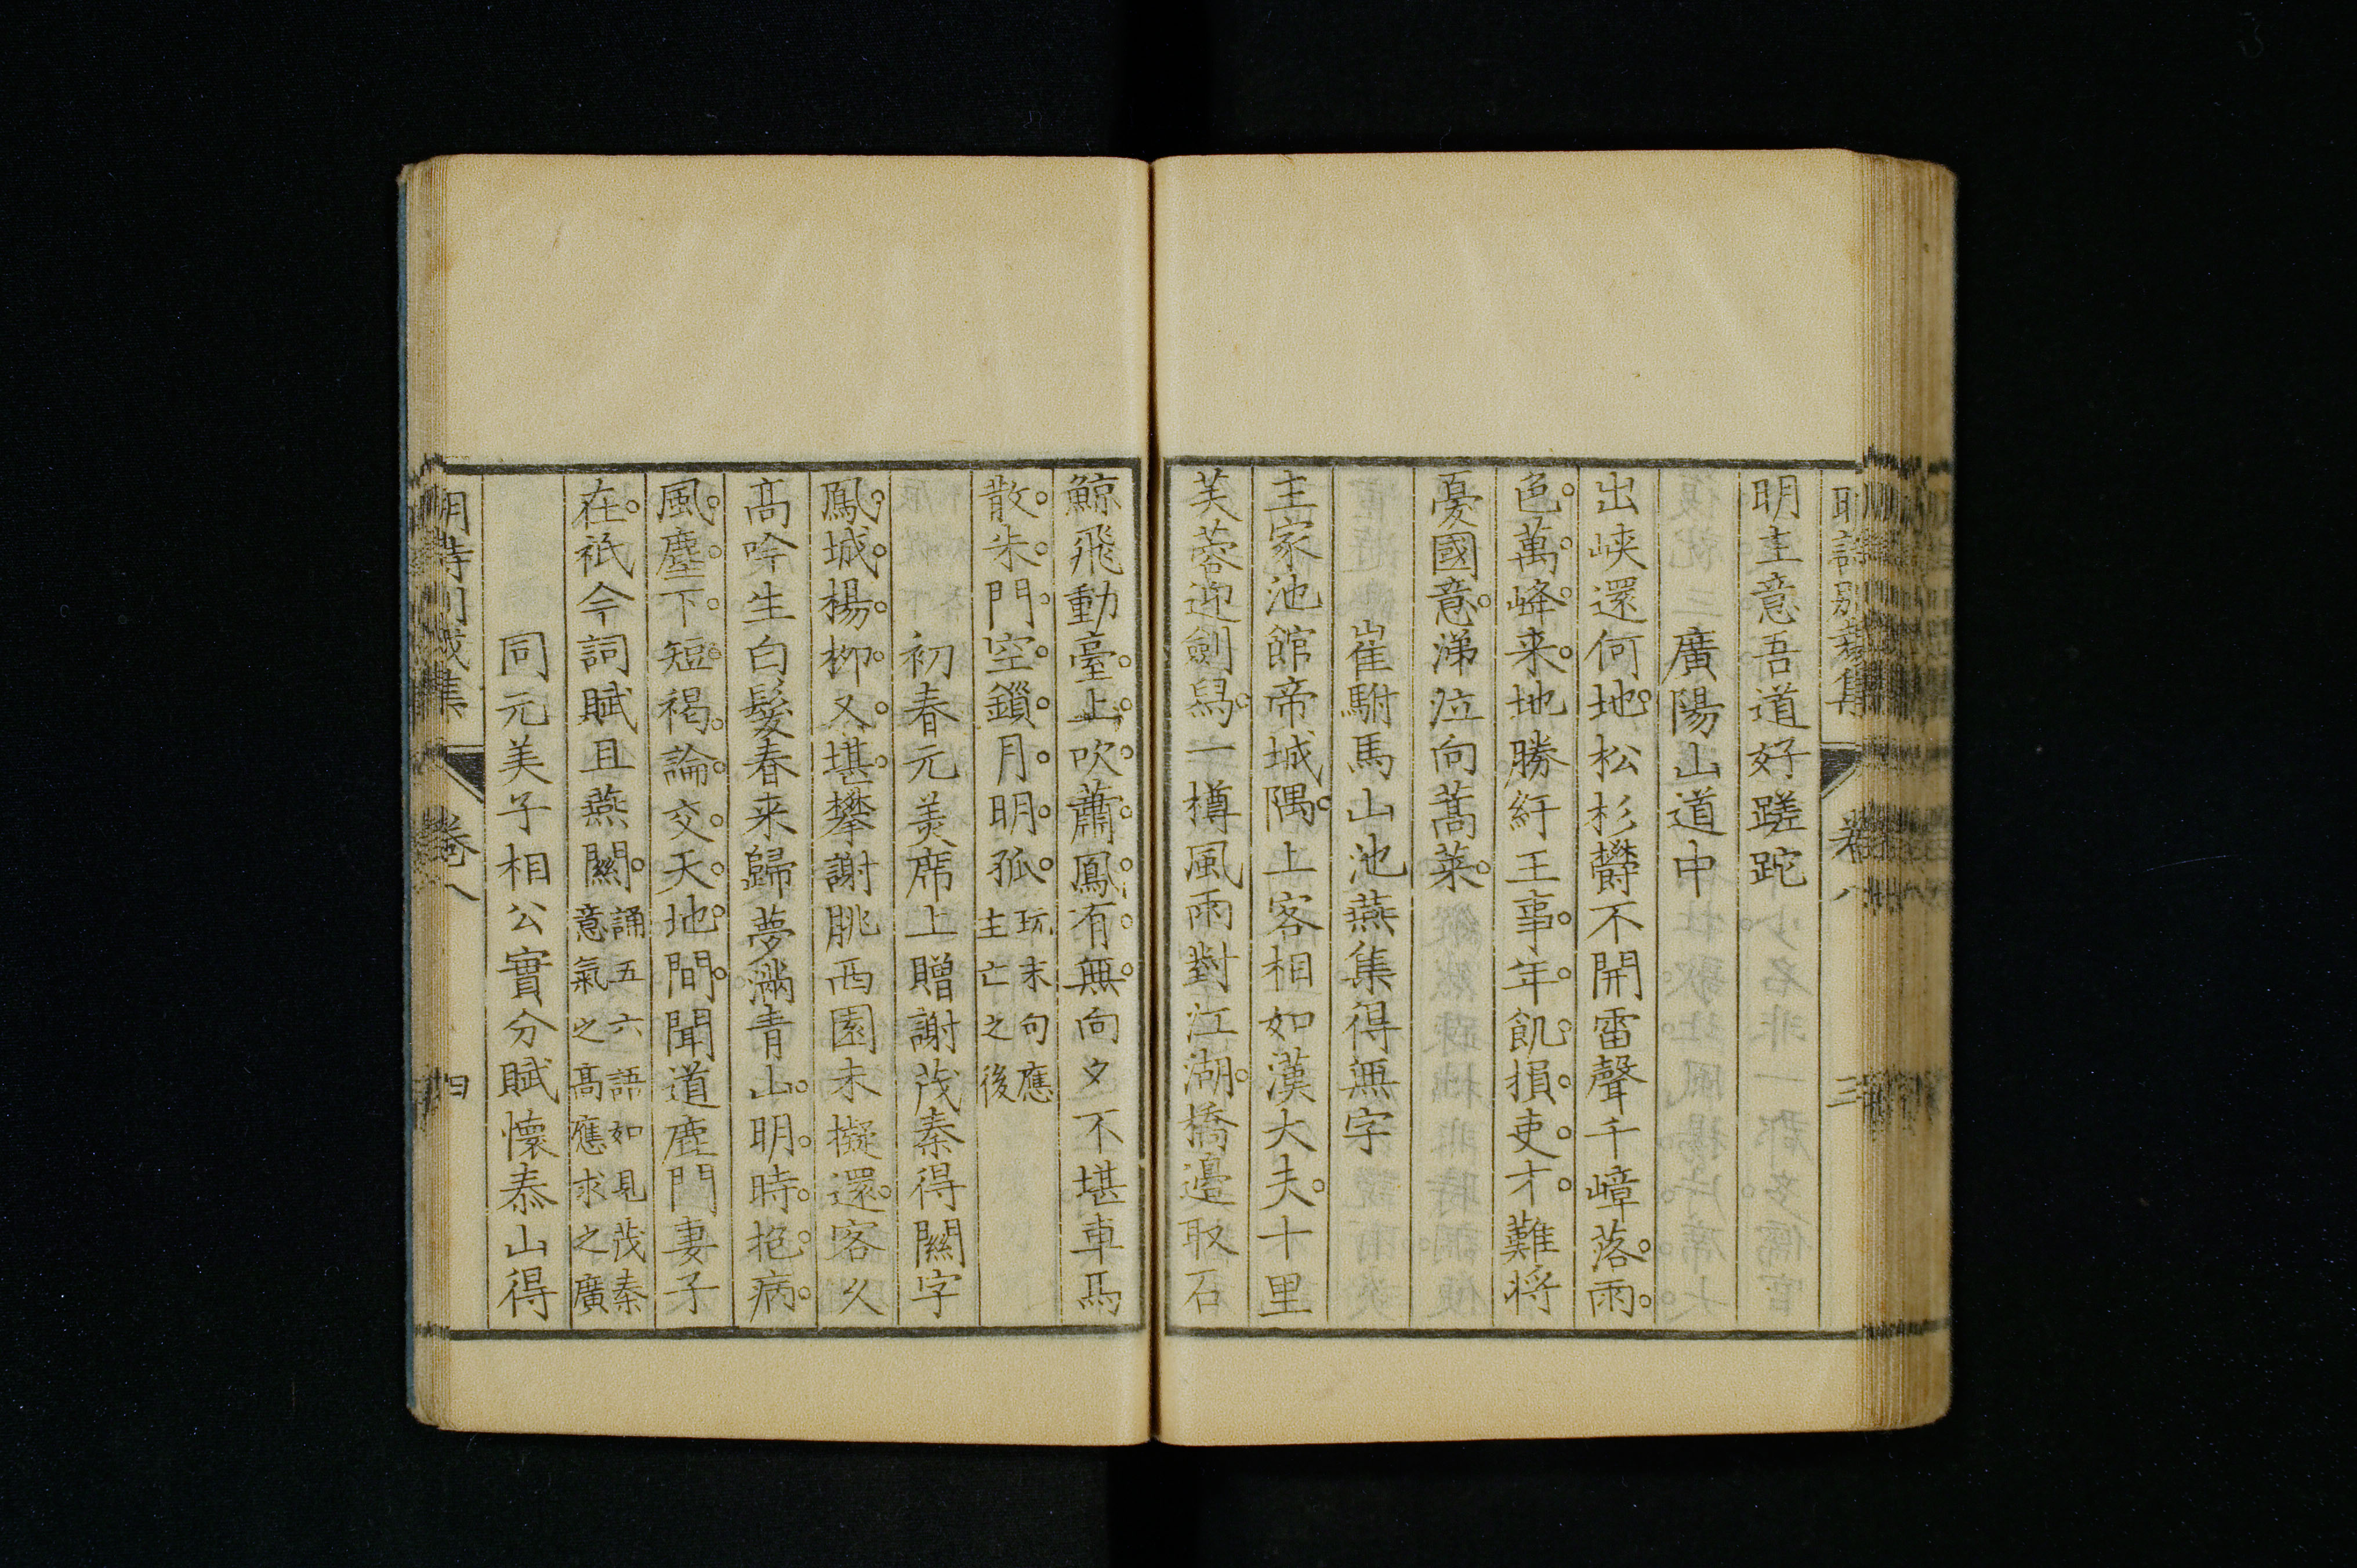 明詩別裁集 卷八 三
明主意吾道好蹉跎
廣陽山道中
出峽還何地松杉鬱不開雷聲千嶂落雨
色萬峰来地勝紆王事年飢損吏才難將
憂國意涕泣向蒿萊
崔駙馬山池燕集得無字
主家池館帝城隅上客相如漢大夫十里
芙蓉迎劍舄一樽風雨對江湖橋邊取石
鯨飛動臺上吹蕭鳳有無向夕不堪車馬
散朱門空鎖月明孤
玩末句應
主亡之後
初春元美席上贈謝茂秦得關字
鳳城楊柳又堪攀謝朓西園未擬還客久
高吟生白髮春来歸夢滿青山明時抱病
風塵下短褐論交天地間聞道鹿門妻子
在祇今詞賦且燕關
誦五六語如見茂秦
意氣之高應求之廣
同元美子相公實分賦懷泰山得
明詩別裁集 卷八 四